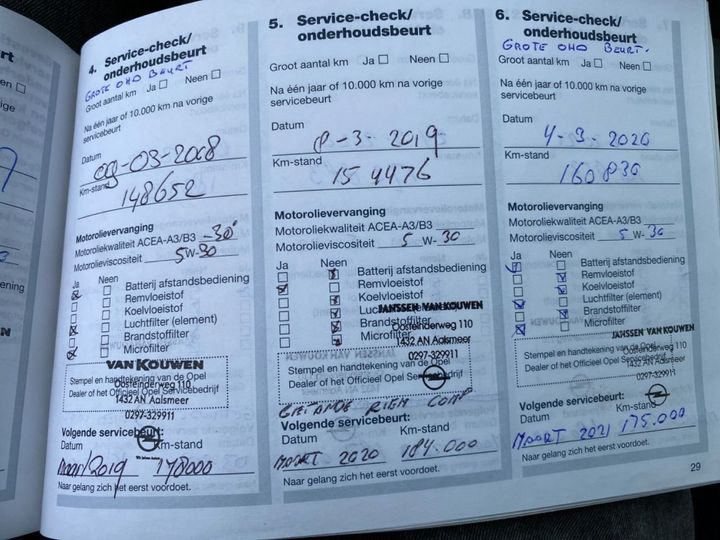 4. Service-check/
onderhoudsbeurt
GROTE OHD BEURT
Groot aantal km Ja Neen
Na één jaar of 10.000 km na vorige
servicebeurt
Datum
09-03-2008
Km-stand
148652
Motorolievervanging
Motoroliekwaliteit ACEA-A3/B3 -30
Motorolieviscositeit 5W-30
Ja Neen
Batterij afstandsbediening
Remvloeistof
Koelvloeistof
Luchtfilter (element)
Brandstoffilter
Microfilter
VAN KOUWEN
Stempel en handtekening van de Opel
Oosteinderweg 110
Dealer of het Officieel Opel Servicebedrijf
1432 AN Aalsmeer
0297-329911
Volgende servicebeurt:
Datum Km-stand
maart 2019 178000
Naar gelang zich het eerst voordoet.
5. Service-check/
onderhoudsbeurt
Groot aantal km Ja Neen
Na één jaar of 10.000 km na vorige
servicebeurt
Datum
8-3-2019
Km-stand
154476
Motorolievervanging
Motoroliekwaliteit ACEA-A3/B3
Motorolieviscositeit 5 W-30
Ja Neen
Batterij afstandsbediening
Remvloeistof
Koelvloeistof
JANSSEN VAN KOUWEN
Brandstoffilter
Oosteinderweg 110
Microfilter
1432 AN Aalsmeer
0297-329911
Stempel en handtekening van de Opel
Dealer of het Officieel Opel Servicebedrijf
Volgende servicebeurt:
Datum Km-stand
MAART 2020 184.000
Naar gelang zich het eerst voordoet.
6. Service-check/
onderhoudsbeurt
GROTE OHD BEURT.
Groot aantal km Ja Neen
Na één jaar of 10.000 km na vorige
servicebeurt
Datum
4-3-2020
Km-stand
160830
Motorolievervanging
Motoroliekwaliteit ACEA-A3/B3
Motorolieviscositeit 5 W-30
Ja Neen
Batterij afstandsbediening
Remvloeistof
Koelvloeistof
Luchtfilter (element)
Brandstoffilter
Microfilter
JANSSEN VAN KOUWEN
Stempel en handtekening van de Opel
Oosteinderweg 110
Dealer of het Officieel Opel Servicebedrijf
1432 AN Aalsmeer
0297-329911
Volgende servicebeurt:
Datum Km-stand
MAART 2021 175.000
Naar gelang zich het eerst voordoet.
29